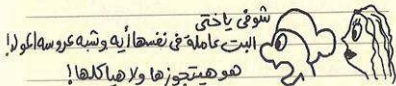 شوفى ياختى
البت عاملة فى نفسها أيه وشبه عروسه المولد!
هو هيتجوزها ولا هياكلها!